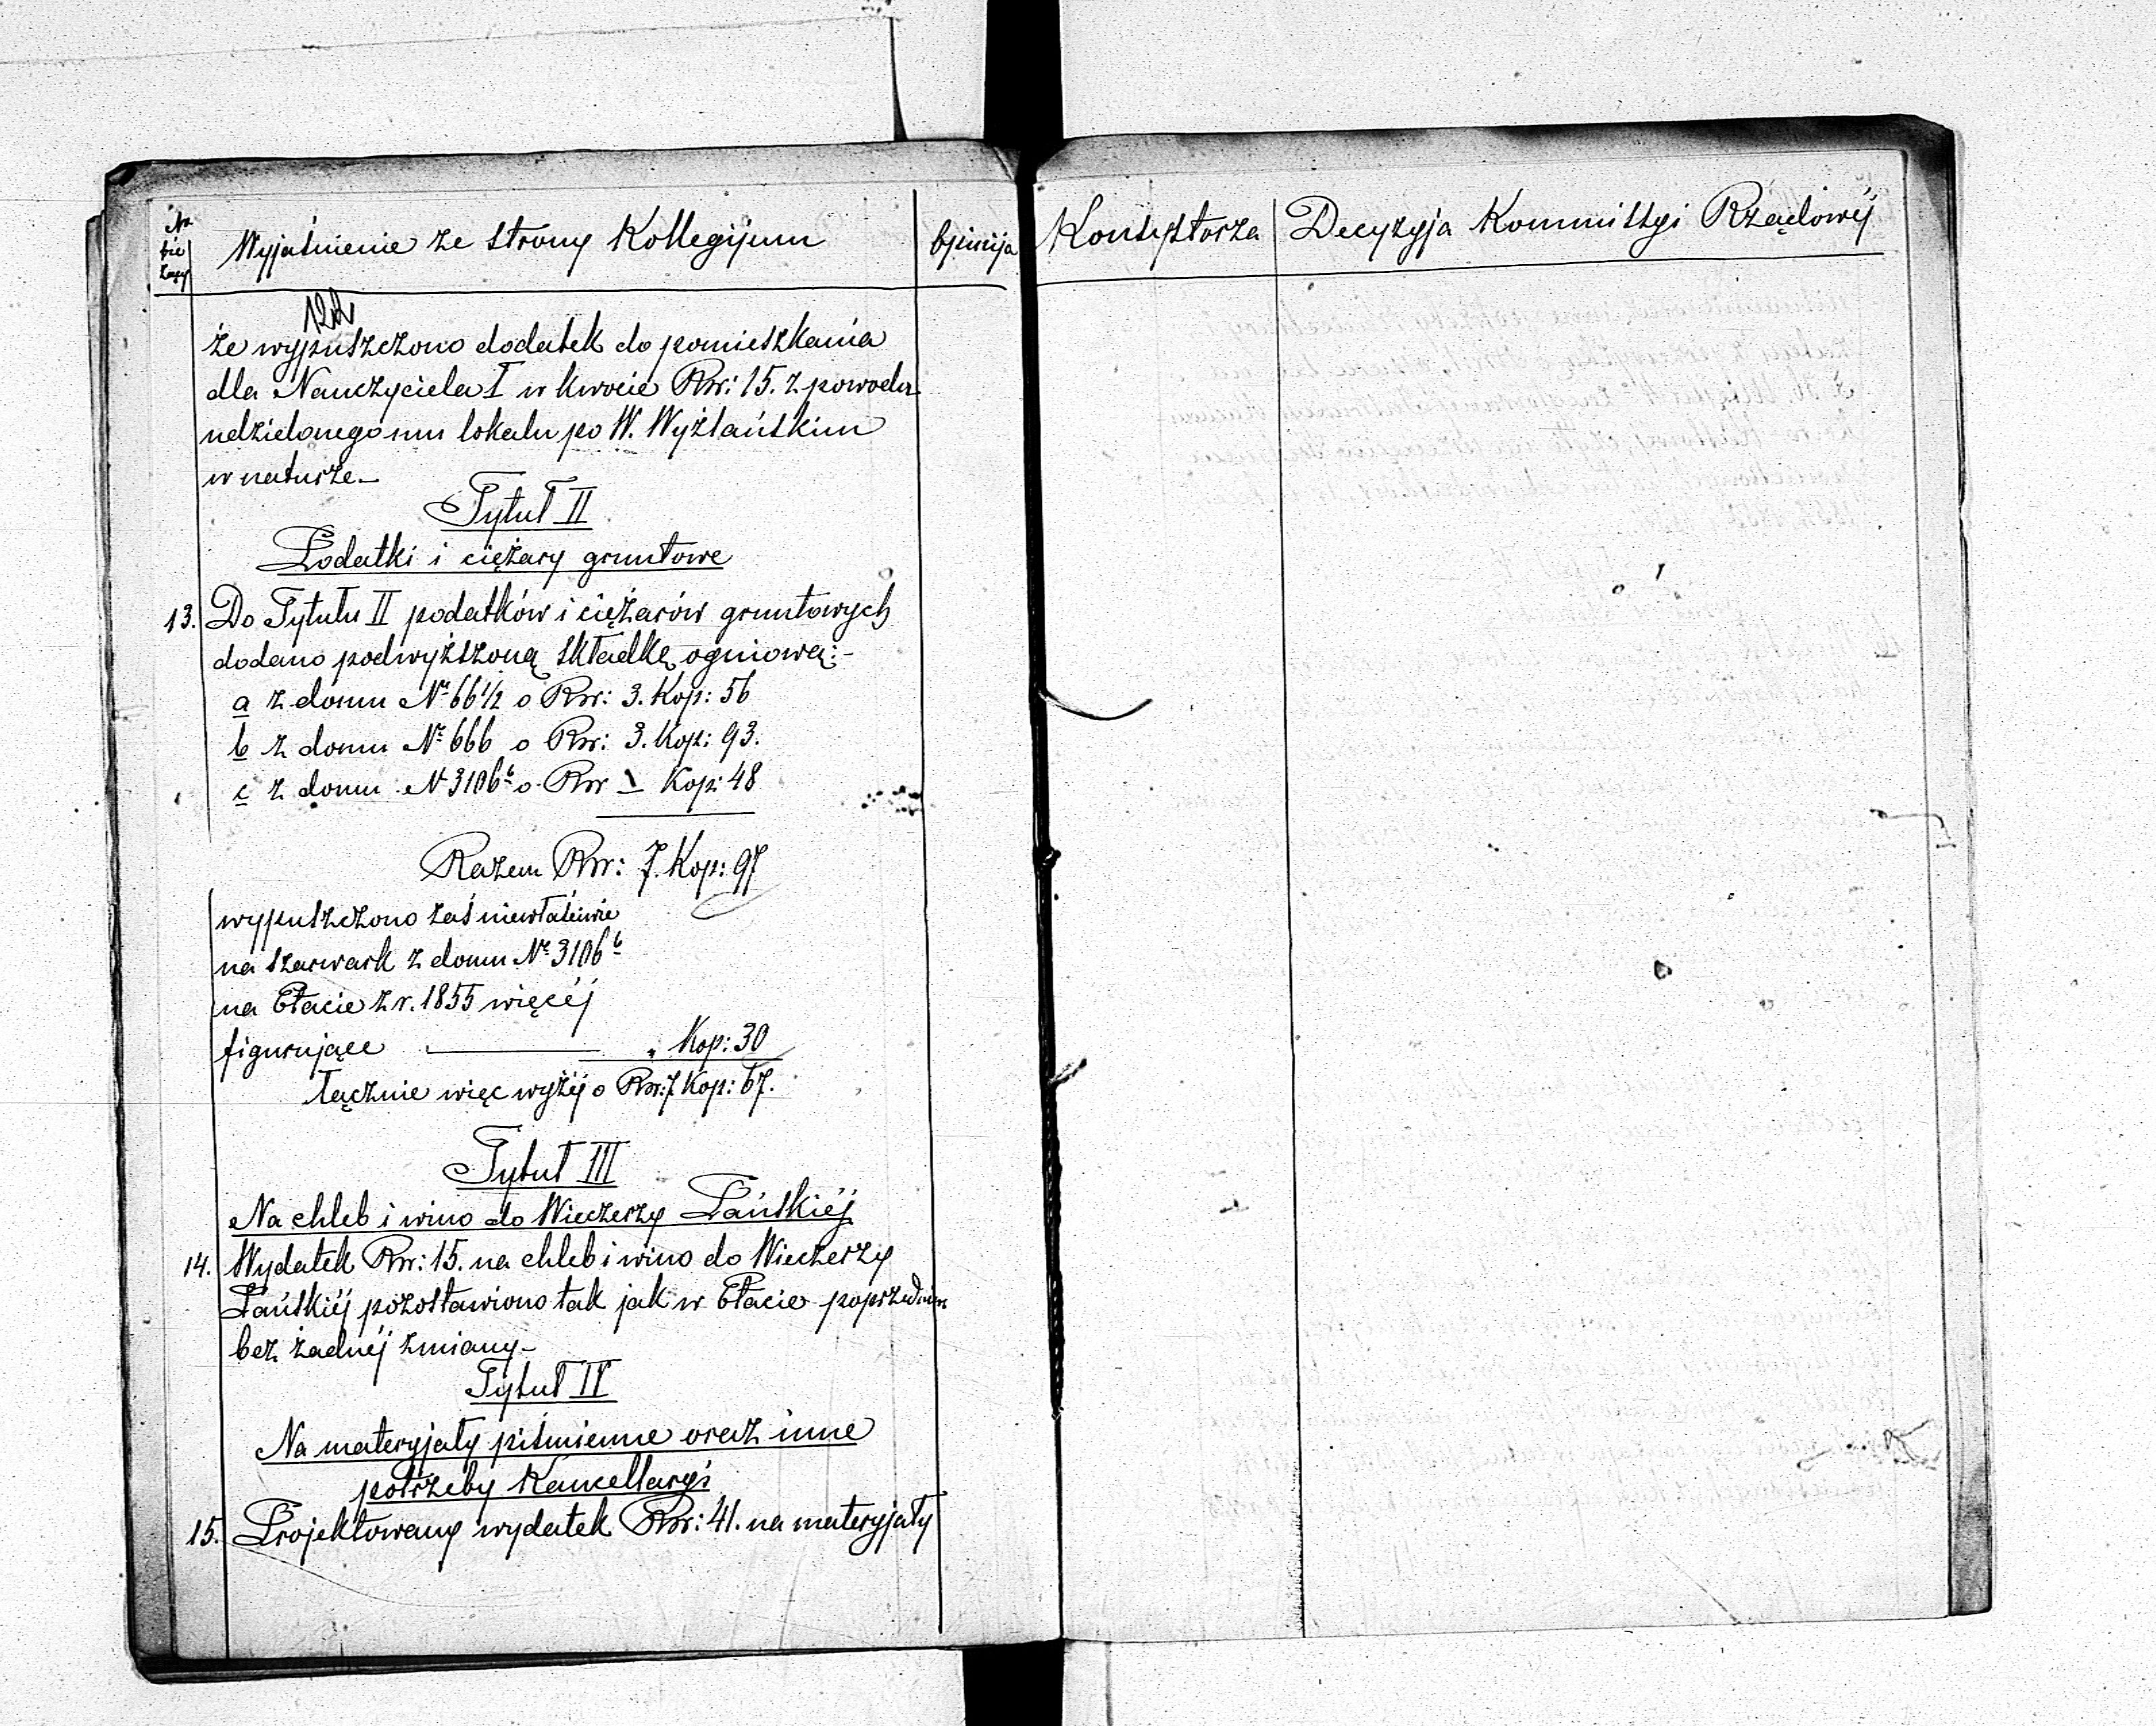 Nr bie żący
Wyjaśnienie ze strony Kollegijum
Opinija Konsystorza
Decyzyja Kommissyi Rządowéj
że wypuszczono dodatek do pomieszkania
dla Nauczyciela I w kwocie Rsr: 15. z powodu
udzielonego mu lokalu po W. Wyżlańskim
w naturze.–
Tytuł II
Podatki i ciężary gruntowe
13. Do Tytułu II podatków i ciężarów gruntowych
dodano podwyższoną składkę ogniową:–
a z domu Nr 66 1/2 o Rsr: 3. Kop: 56
b z domu Nr 666 o Rsr: 3. Kop: 93.
c z domu N 3106 b o Rsr Kop: 48
Razem Rsr: 7. Kop: 97
wypuszczono zaś niewłaściwie
na szarwark z domu Nr 3106 b
na Etacie z r. 1855 więcéj
figurujące — „ Kop: 30
łącznie więc wyżéj o Rsr: 7 Kop: 67.
Tytuł III
Na chleb i wino do Wieczerzy Pańskiéj
14. Wydatek Rsr: 15. na chleb i wino do Wieczerzy
Pańskiéj pozostawiono tak jak w Etacie poprzednim
bez żadnéj zmiany–
Tytuł IV
Na materyjały piśmienne oraz inne
potrzeby Kancellaryi
15. Projektowany wydatek Rsr: 41. na materyjały